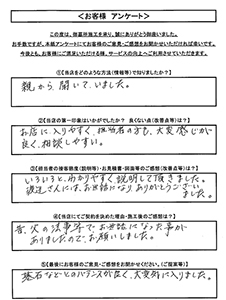 <お客様 アンケート>
この度は、御墓所施工を承り、誠にありがとう御座いました。
お手数ですが、本紙アンケートにてお客様のご意見・ご感想をお聞かせいただければ幸いです。
今後とも、お客様にご満足いただける様、サービスの向上へご利用させていただきます。
①【当店をどのような方法(情報等)で知りましたか?】
親から、聞いていました。
②【当店の第一印象はいかがでしたか? 良くない点(改善点等)は?】
お店に、入りやすく、担当者の方も、大変感じが
良く、相談しやすい。
③【担当者の接客態度(説明等)・お見積書・図面等のご感想(改善点等)は?】
いろいろと、わかりやすく説明して頂きました。
渡辺さんには、お世話になり、ありがとうござい
ました。
④【当店にてご契約を決めた理由・施工後のご感想は?】
昔、父の法事等でお世話になった事が
ありましたので、お願いしました。
⑤【最後にお客様のご意見・ご感想をお聞かせください。(ご提案等)】
墓石などとのバランスが良く、大変気に入りました。